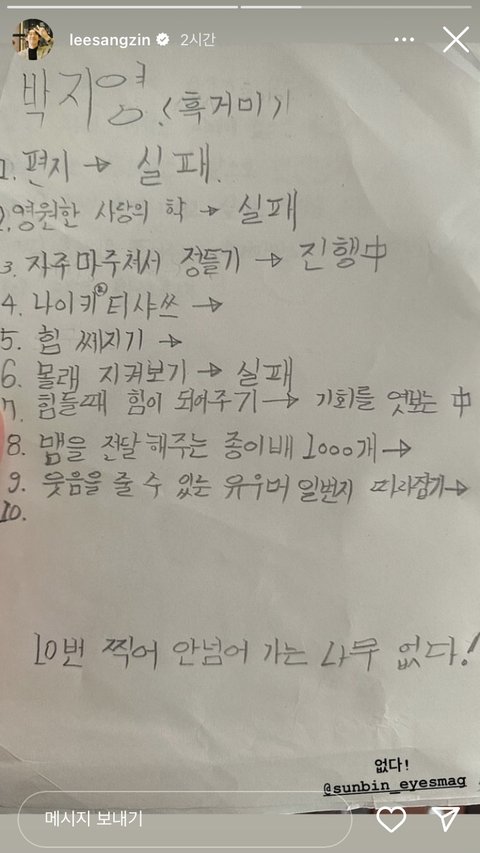 leesangzin 2시간
박지영 (흑거미)
1. 편지 → 실패.
2. 영원한 사랑의 학 → 실패
3. 자주 마주쳐서 정들기 → 진행中
4. 나이키® 티샤쓰 →
5. 힘 쎄지기 →
6. 몰래 지켜보기 → 실패
7. 힘들때 힘이 되어주기 → 기회를 엿보는 中
8. 맴을 전달해주는 종이배 1000개 →
9. 웃음을 줄 수 있는 유우머 일번지 따라잡기 →
10.
10번 찍어 안넘어 가는 나무 없다!
없다!
@sunbin_eyesmag
메시지 보내기